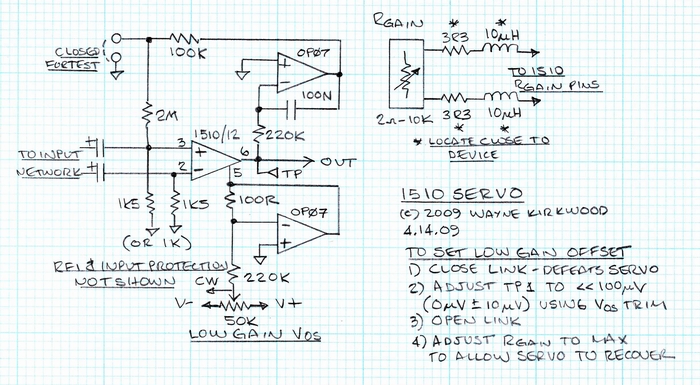 CLOSED
FOR TEST
100K
OP07
100N
2M
1510/12
220K
3
2
6
5
+
-
TO INPUT
NETWORK
OUT
TP
1K5
1K5
(OR 1K)
100R
OP07
RFI & INPUT PROTECTION
NOT SHOWN
220K
CW
V-
V+
50K
LOW GAIN VOS
RGAIN
*
*
3R3
10µH
TO 1510
RGAIN PINS
3R3
10µH
2Ω-10K
*
*
* LOCATE CLOSE TO
DEVICE
1510 SERVO
(c) 2009 WAYNE KIRKWOOD
4.14.09
TO SET LOW GAIN OFFSET
1) CLOSE LINK - DEFEATS SERVO
2) ADJUST TP1 TO << 100µV
(0µV ± 10µV) USING VOS TRIM
3) OPEN LINK
4) ADJUST RGAIN TO MAX
TO ALLOW SERVO TO RECOVER